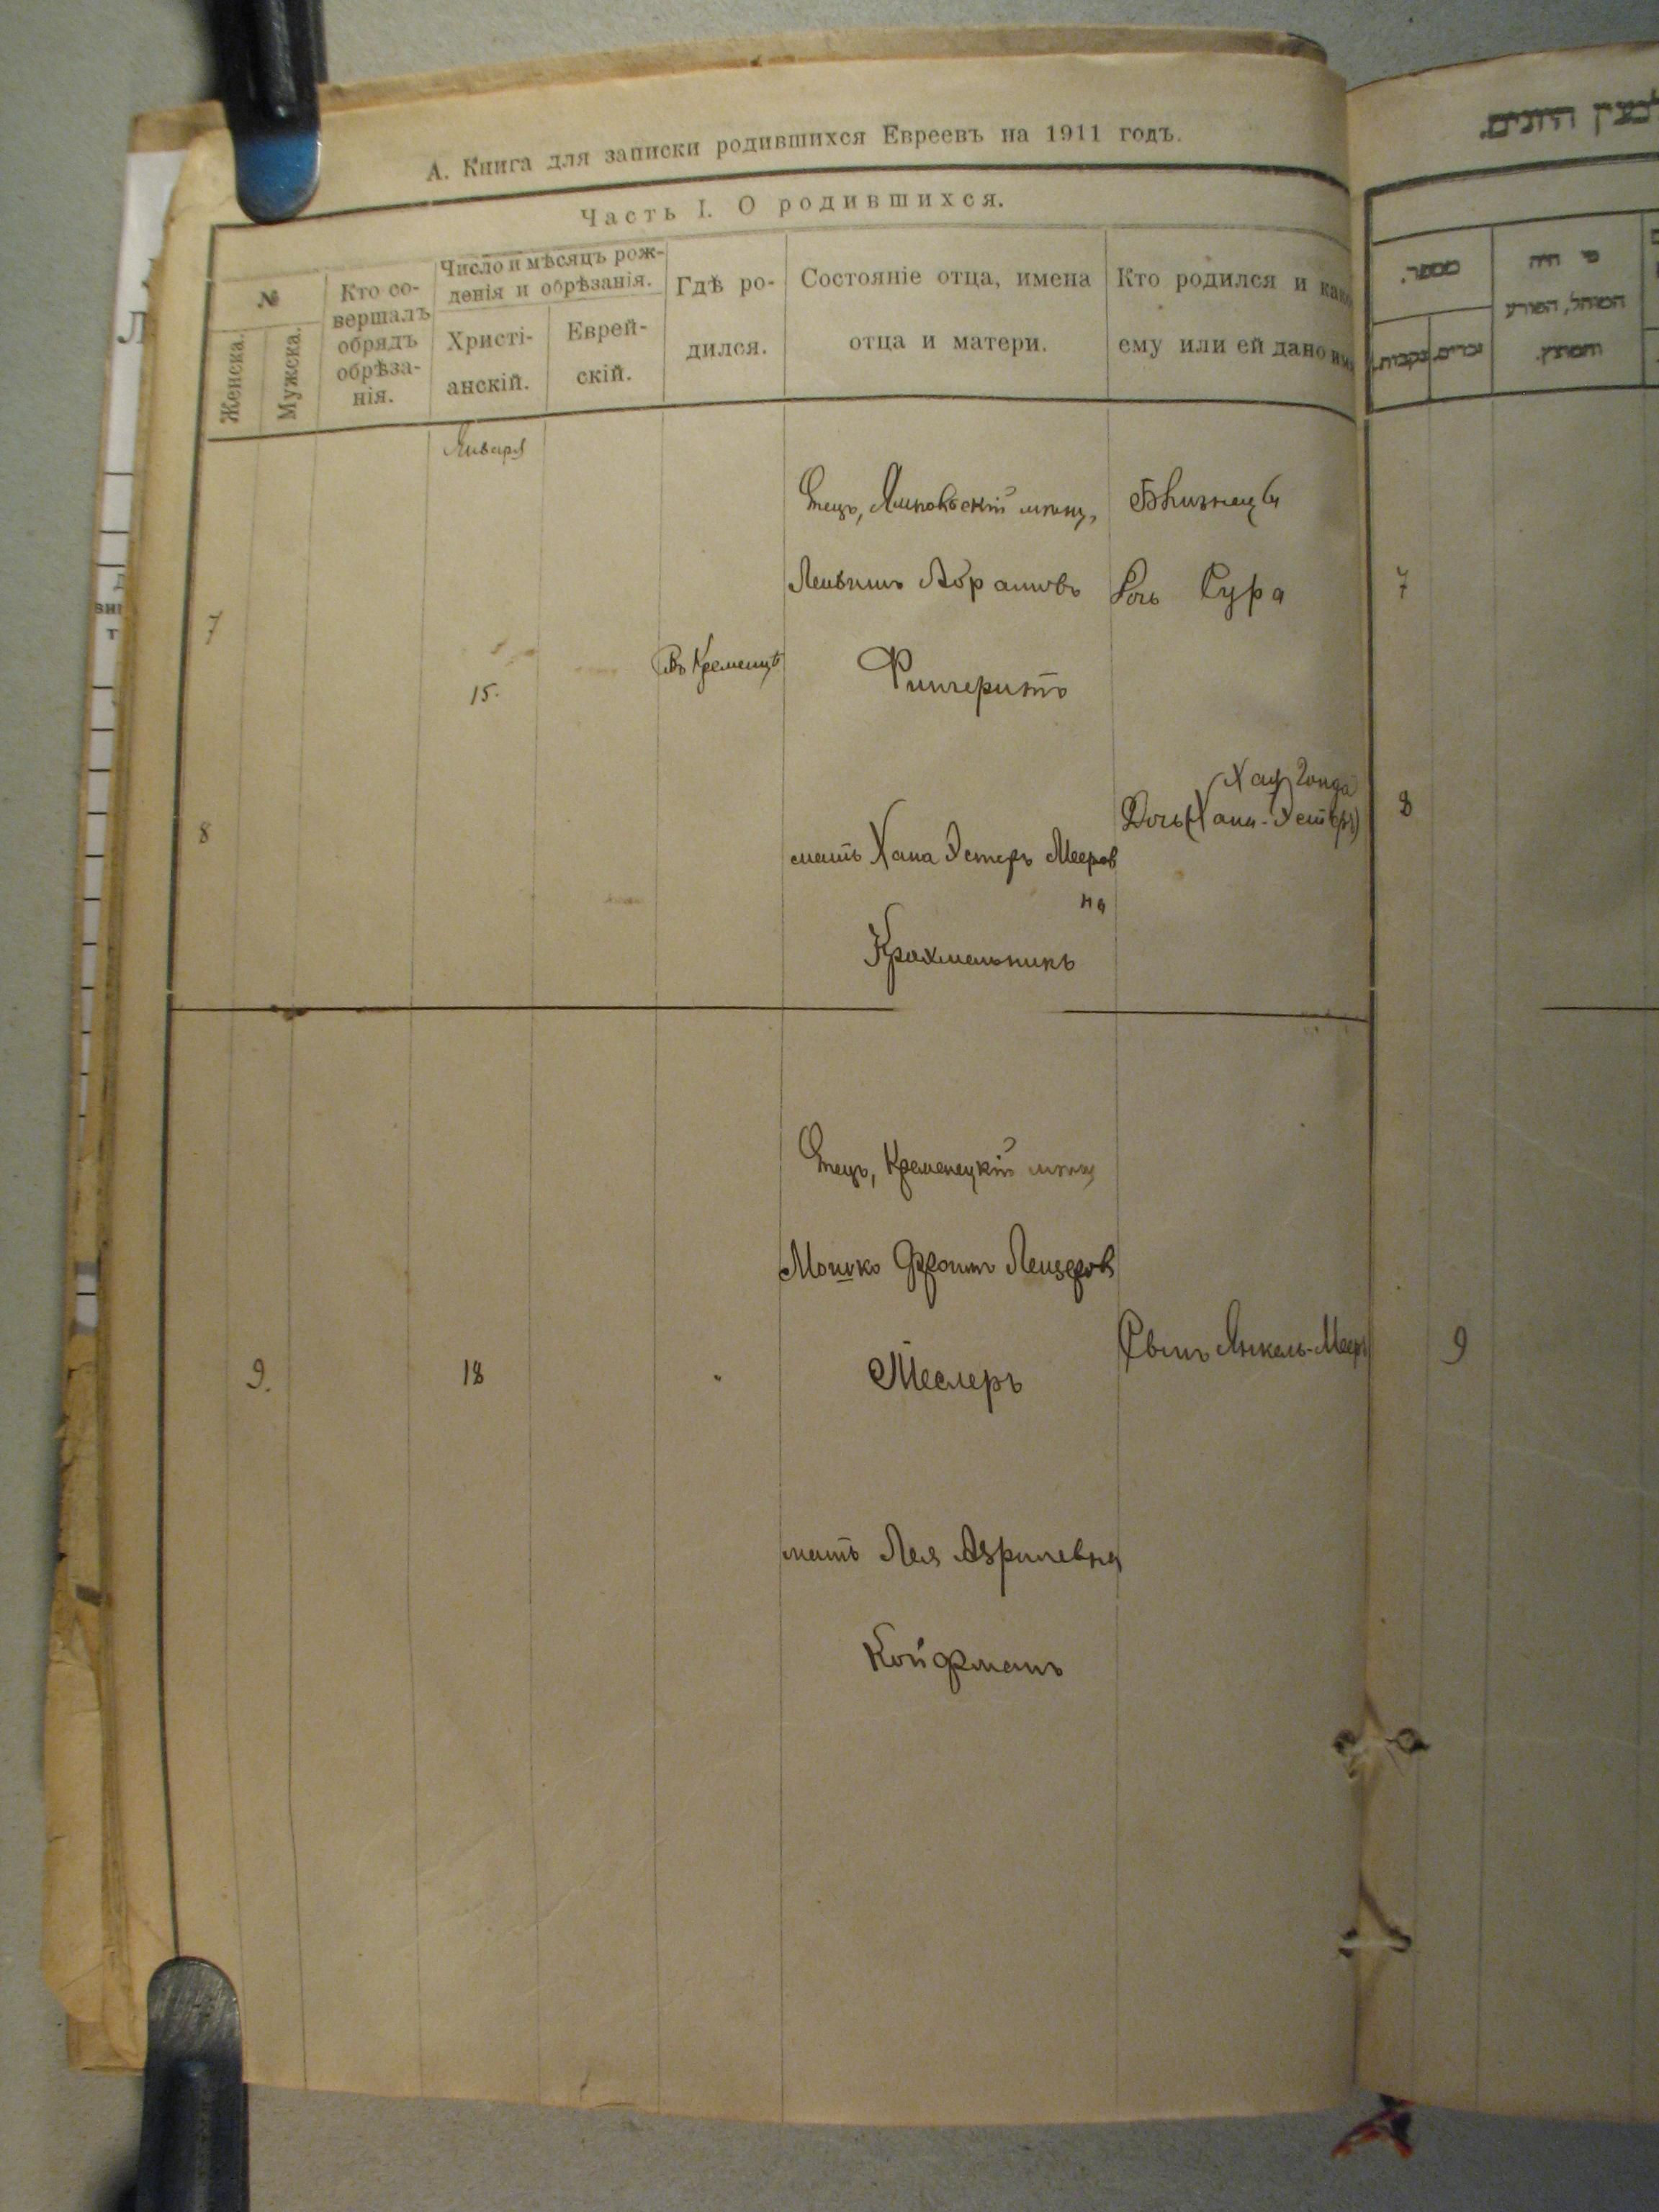 А. Книга для записки родившихся Евреевъ на 1911 годъ.
Часть I. О родившихся.
№
Женска.
Мужска.
Кто со-
вершалъ
обрядъ
обрѣза-
нія.
Число и мѣсяцъ рож-
денія и обрѣзанія.
Христі-
анскій.
Еврей-
скій.
Гдѣ ро-
дился.
Состояніе отца, имена
отца и матери.
Кто родился и како
ему или ей дано имя
Января
7
15.
Въ Кременцѣ
Отецъ, мѣщ,
Абрамовъ
Фингеритъ
Близнецы
Дочь Сура
8
мать Хана Эстеръ Мееров
на
Крахмальникъ
Хая
Дочь (Хана-Эстеръ)
9.
18
"
Отецъ, Кременецкій мѣщ
Мошко Фроимъ Лейзеровъ
Меслеръ
мать Лея Азрилевна
Койфманъ
Сынъ Янкель-Мееръ
מספר.
נקבות.
זכרים.
מי היה
המוהל, הפורע
והמוצץ.
7
8
9